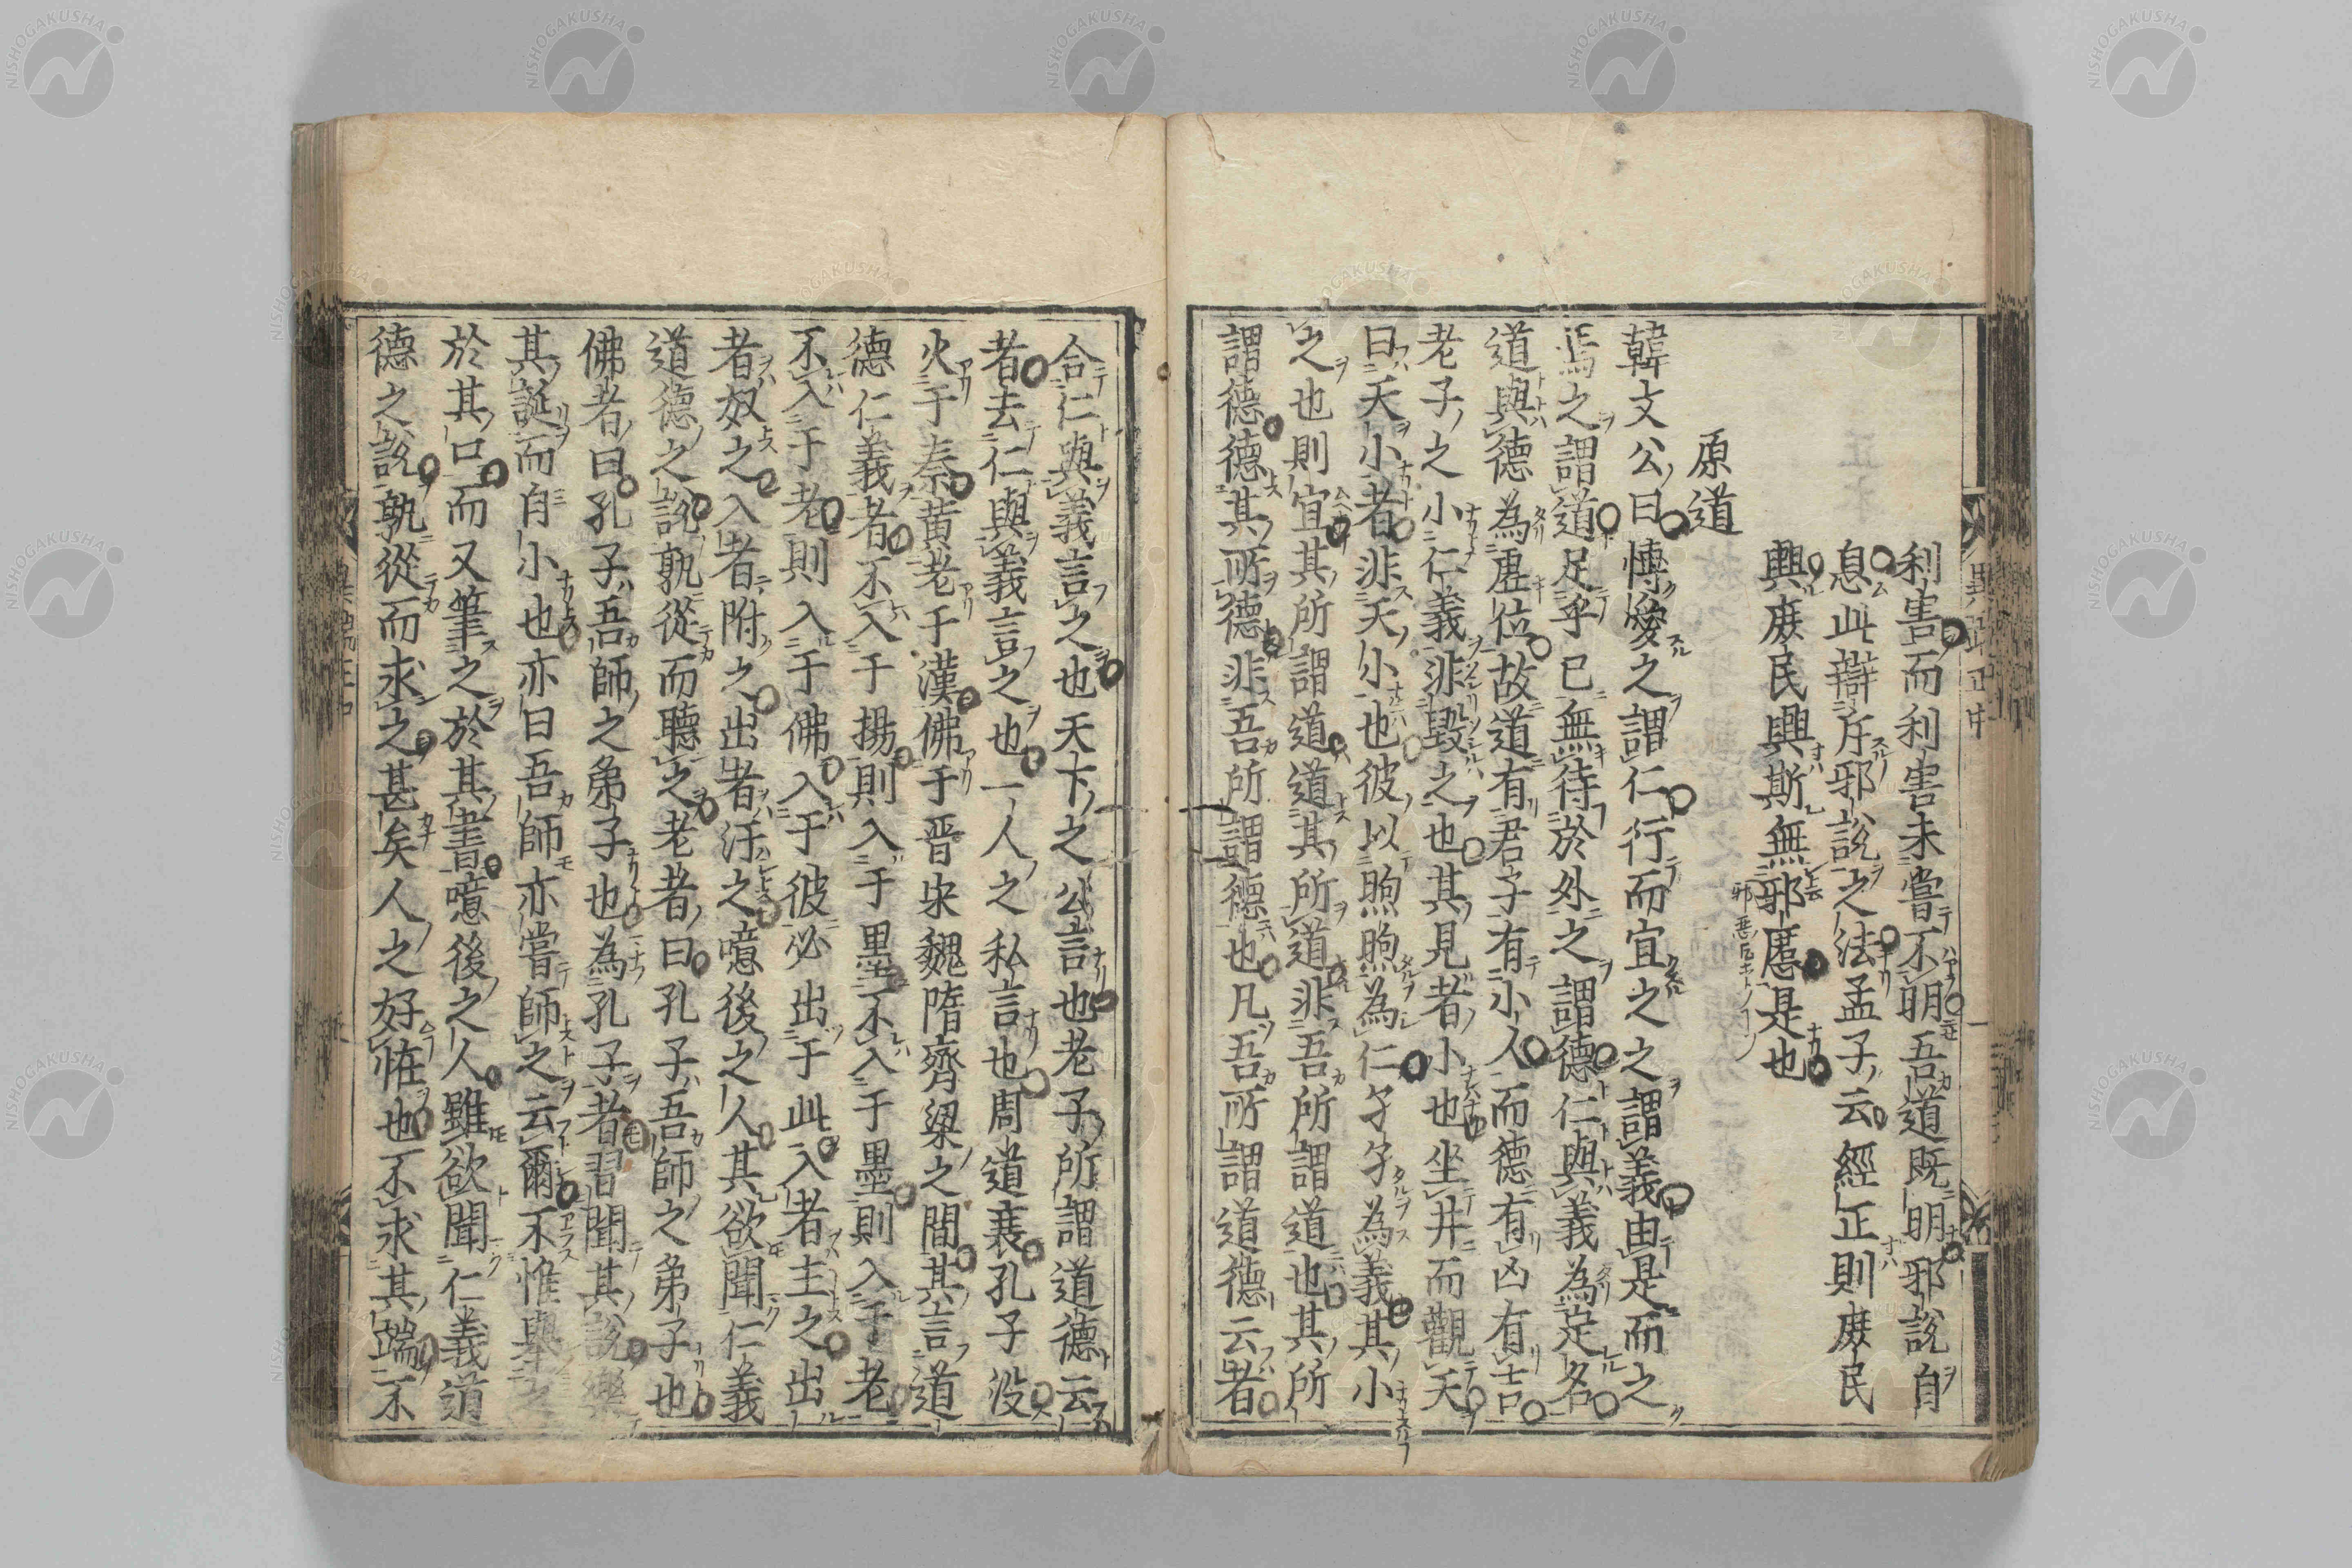 利害而利害未嘗不明吾道既明邪說自
息此辯斥邪說之法孟子云經正則庶民
興庶民興斯無邪慝是也
原道
韓文公曰博愛之謂仁行而宜之之謂義由是而之
焉之謂道足乎已無待於外之謂德仁與義為定名
道與德為虛位故道有君子有小人而德有凶有吉
老子之小仁義非毀之也其見者小也坐井而觀天
曰天小者非天小也彼以煦煦為仁孑孑為義其小
之也則宜其所謂道道其所道非吾所謂道也其所
謂德德其所德非吾所謂德也凡吾所謂道德云者
合仁與義言之也天下之公言也老子所謂道德云
者去仁與義言之也一人之私言也周道衰孔子沒
火于秦黃老于漢佛于晉宋魏隋齊梁之間其言道
德仁義者不入于揚則入于墨不入于墨則入于老
不入于老則入于佛入于彼必出于此入者主之出
者奴之入者附之出者汙之噫後之人其欲聞仁義
道德之說孰從而聽之老者曰孔子吾師之弟子也
佛者曰孔子吾師之弟子也為孔子者習聞其說樂
其誕而自小也亦曰吾師亦嘗師之云爾不惟舉之
於其口而又筆之於其書噫後之人雖欲聞仁義道
德之說孰從而求之甚矣人之好怪也不求其端不
NISHOGAKUSHA